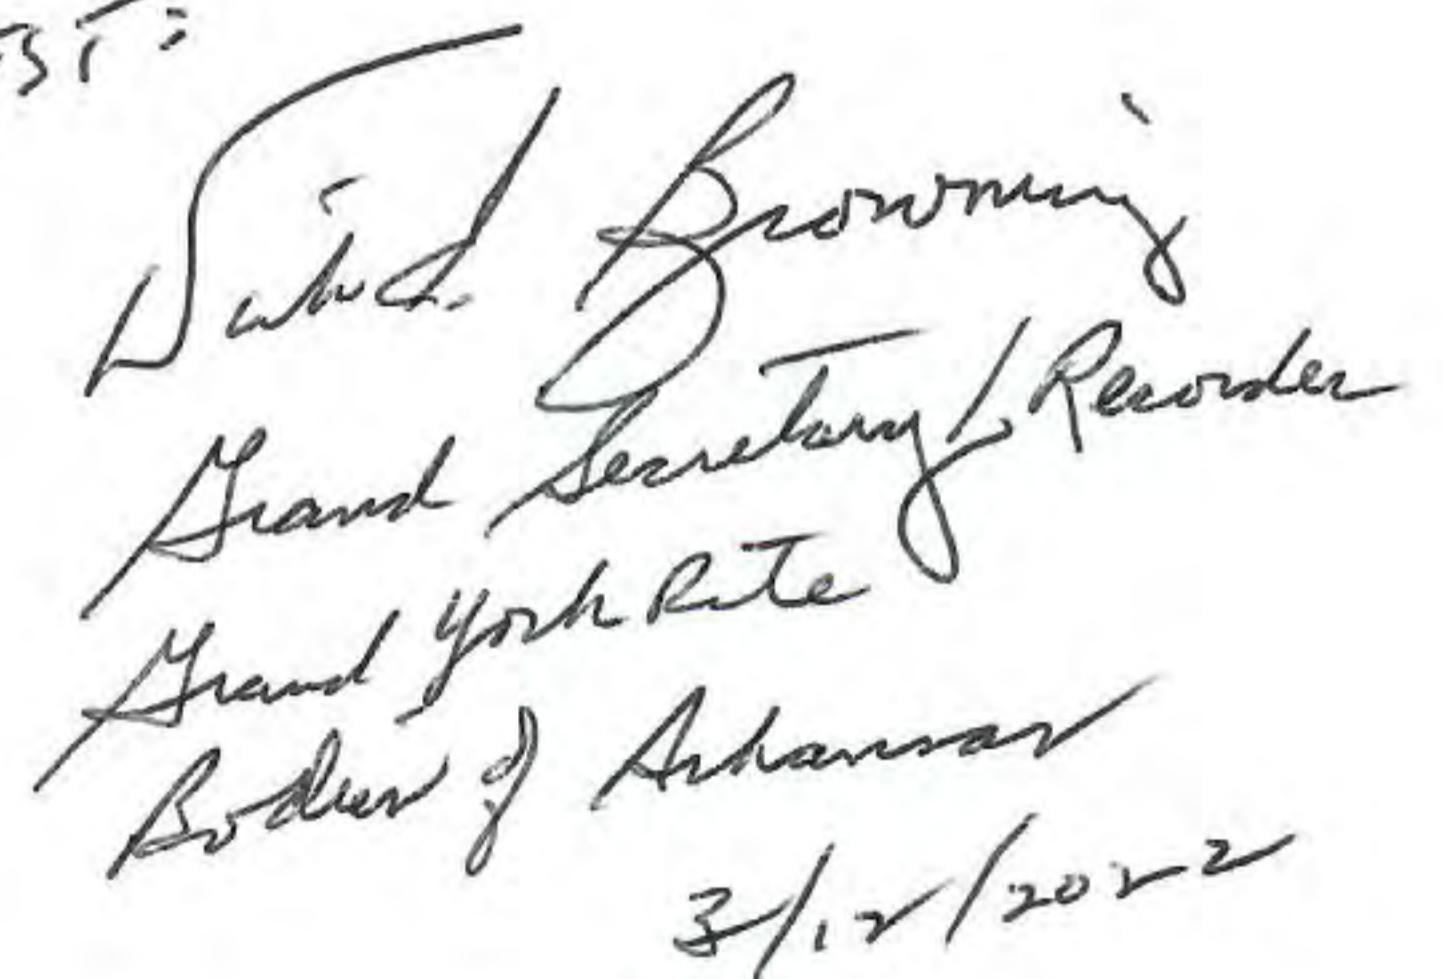 EST:
David Browning
Grand Secretary/Recorder
Grand York Rite
Bodies of Arkansas
3/12/2022